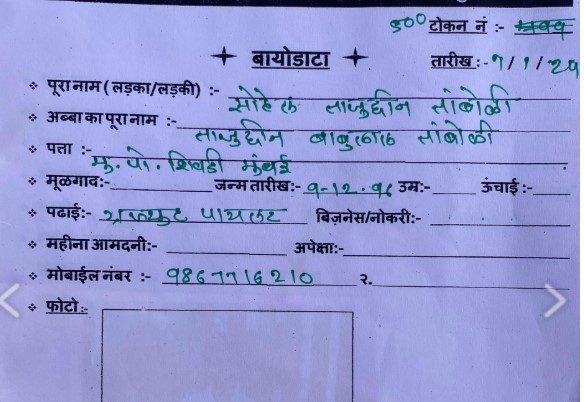 ५०० टोकन नं :-
बायोडाटा
तारीख :- १/१/२१
पूरा नाम ( लड़का/लड़की) :- सोहेल ताजुद्दीन तांबोळी
अब्बा का पूरा नाम :- ताजुद्दीन बाबुलाल तांबोळी
पत्ता :- मु. पो. शिवडी मुंबई
मूळगाव:- जन्म तारीख:- १-12.९६ उम्र:- ऊंचाई :-
पढाई:- पायलट बिज़नेस/नोकरी:-
महीना आमदनी:- अपेक्षा:-
मोबाईल नंबर :- 9867716210 २.
फोटो :-